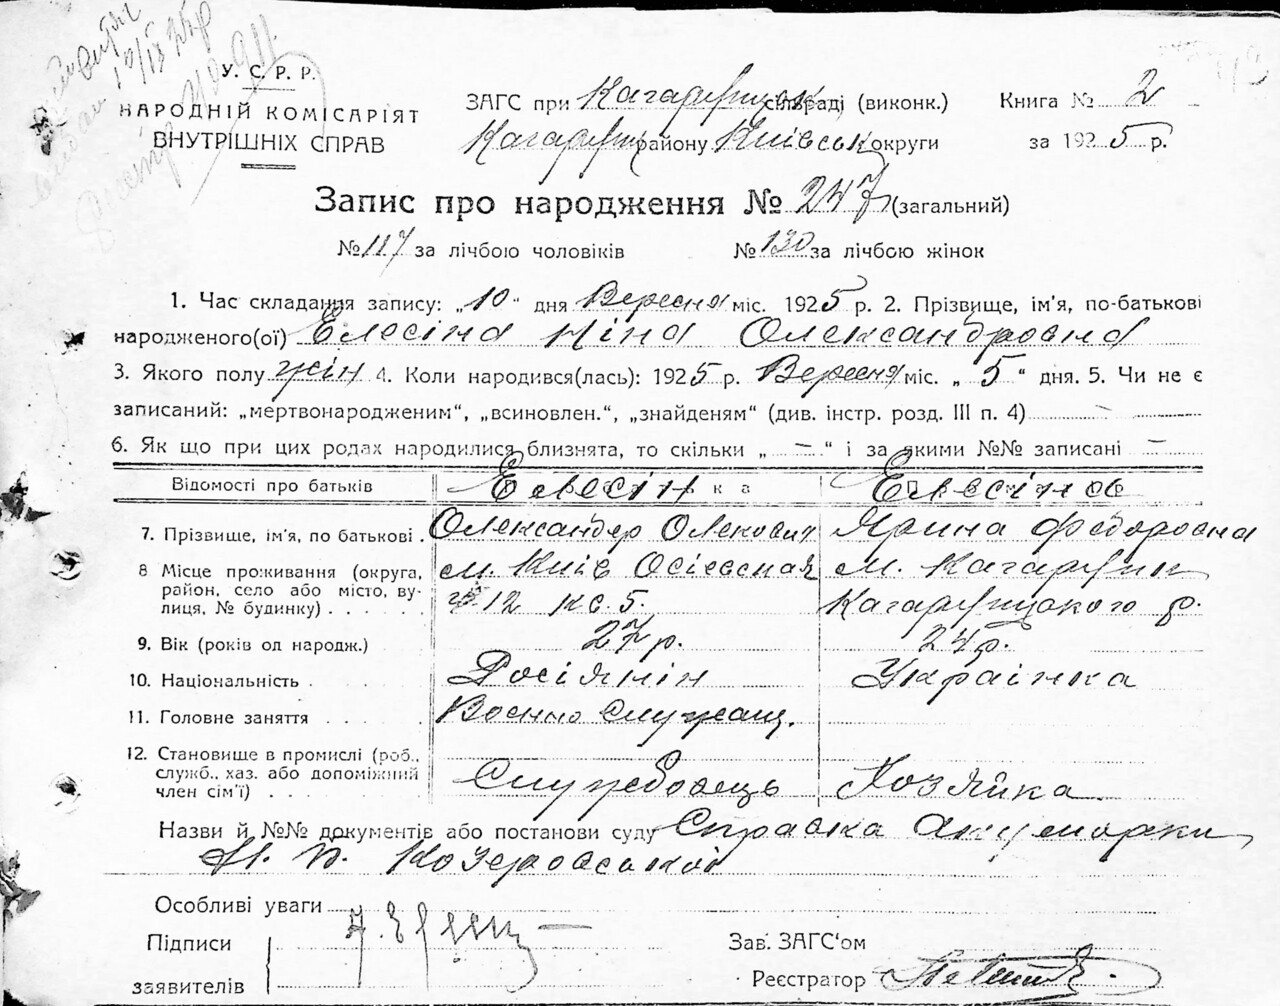 У. С. Р. Р.
НАРОДНІЙ КОМІСАРІЯТ
ВНУТРІШНІХ СПРАВ
ЗАГС при Кагарлицьк сільраді (виконк.)
Кагарлиц району Київськ округи
Книга № 2
за 1925 р.
Запис про народження № 247 (загальний)
№ 117 за лічбою чоловіків № 130 за лічбою жінок
1. Час складання запису: „10“ дня Вересня міс. 1925 р. 2. Прізвище, ім'я, по-батькові
народженого(ої) Елесіна Ніна Олександровна
3. Якого полу жін 4. Коли народився(лась): 1925 р. Вересня міс. „5“ дня. 5. Чи не є
записаний: „мертвонародженим“, „всиновлен.“, „знайденям“ (див. інстр. розд. III п. 4) –
6. Як що при цих родах народилися близнята, то скільки „ – “ і за якими №№ записані –
Відомості про батьків Елесін Елесінова
7. Прізвище, ім'я, по батькові . Олександер Ярина Федоровна
8 Місце проживання (округа, м. Київ м. Кагарлик
район, село або місто, ву- 12 кв. 5. Кагарлицкого р.
лиця, № будинку) . . . . .
9. Вік (років од народж.) 27 р. 24 р.
10. Національність . Росіянін Українка
11. Головне заняття . . . . . Воєнно Служащ.
12. Становище в промислі (роб.,
служб., хаз. або допоміжний Служебовець Хозяйка
член сім'ї) . . . .
Назви й №№ документів або постанови суду Справка Акушорки
Козеровської
Особливі уваги
Підписи
заявителів
Зав. ЗАГС'ом
Реєстратор